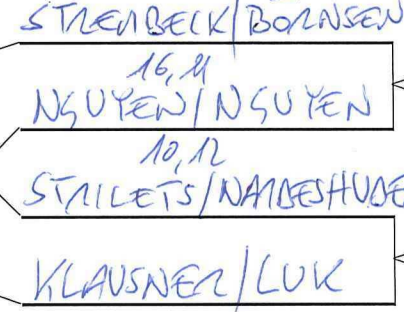 STREMBECK/BÖRNSEN
16,11
NGUYEN/NGUYEN
10,12
STRILETS/NARBESHUBE
KLAUSNER/LUK